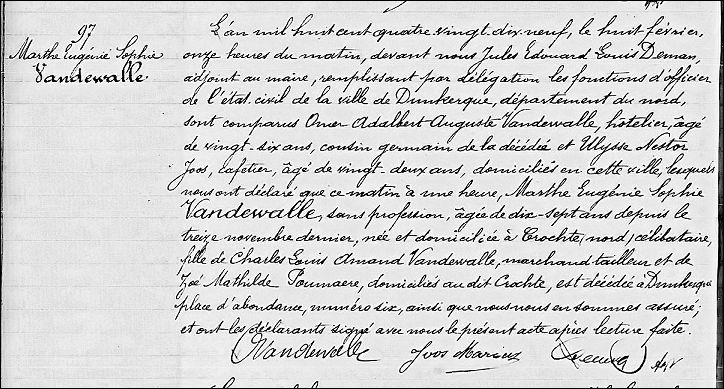 97
Marthe Eugénie Sophie
Vandewalle
L'an mil huit cent quatre vingt dix neuf, le huit février,
onze heures du matin, devant nous Jules Edouard Louis Deman,
adjoint au maire, remplissant par délégation les fonctions d'officier
de l'état civil de la ville de Dunkerque, département du nord,
sont comparus Omer Adalbert Auguste Vandewalle, hôtelier, âgé
de vingt-six ans, cousin germain de la décédée et Ulysse Nestor
Joos, cafetier, âgé de vingt-deux ans, domiciliés en cette ville, lesquels
nous ont déclaré que ce matin à une heure, Marthe Eugénie Sophie
Vandewalle, sans profession, âgée de dix-sept ans depuis le
treize novembre dernier, née et domiciliée à Crochte (nord) célibataire,
fille de Charles Louis Amand Vandewalle, marchand-tailleur et de
Zoé Mathilde Poumaere, domiciliés au dit Crochte, est décédée à Dunkerque
place d'abondance, numéro six, ainsi que nous nous en sommes assuré;
et ont les déclarants signé avec nous le présent acte après lecture faite.
Vandewalle Joos